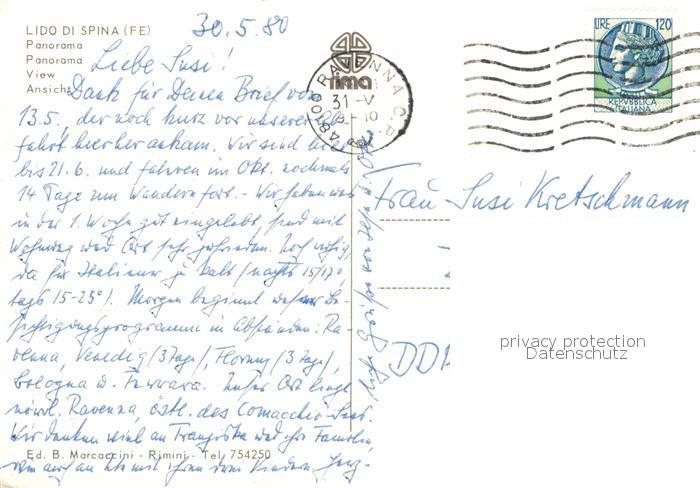 LIDO DI SPINA (FE)
Panorama
Panorama
View
Ansicht
30.5.80
rima
48100 RAVENNA C.P.
31-V
9-10
LIRE 120
REPVBBLICA
ITALIANA
Liebe Susi!
Dank für Deinen Brief vom
13.5., der noch kurz vor unserer Ab-
fahrt hier ankam. Wir sind hier
bis 21.6. und fahren im Okt. nochmals
14 Tage zum Wandern fort. - Wir haben uns
in der 1. Woche gut eingelebt, sind mit
Wohnung und Ort sehr zufrieden. Noch ruhig,
da für Italiener zu kalt (nachts 15/17°,
tags 15-25°). Morgen beginnt unser Be-
sichtigungsprogramm in Abständen: Ra-
venna, Venedig (3 Tage), Florenz (3 Tage),
Bologna u. Ferrara. Unser Ort liegt
nördl. Ravenna, östl. des Comacchio-Sees.
Wir denken viel an Franziska und ihre Familie,
Ed. B. Marcaccini - Rimini - Tel 754250
mit ihren drei Kindern
Frau Susi Kretschmann
DD
privacy protection
Datenschutz